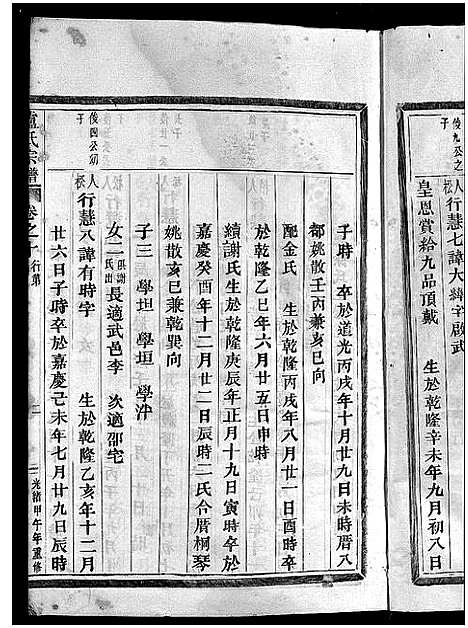 俊九公之子
人松行慧七諱大緯字啟武
皇恩賞給九品頂戴 生於乾隆辛未年九月初八日
子時 卒於道光丙戌年十月廿九日未時厝八
都姚散壬丙兼亥巳向
配金氏 生於乾隆丙戌年八月廿一日酉時卒
於乾隆乙巳年六月廿五日申時
續謝氏生於乾隆庚辰年正月十九日寅時卒於
嘉慶癸酉年十二月廿二日辰時二氏合厝桐琴
姚散亥巳兼乾巽向
子三 學坦 學垣 學泮
女二俱謝氏出長適武邑李 次適邵宅
俊四公初子
人松行慧八諱有時字 生於乾隆乙亥年十二月
廿六日子時卒於嘉慶己未年七月廿九日辰時
盧氏宗譜 卷之十行第 二 光緒甲午年重修